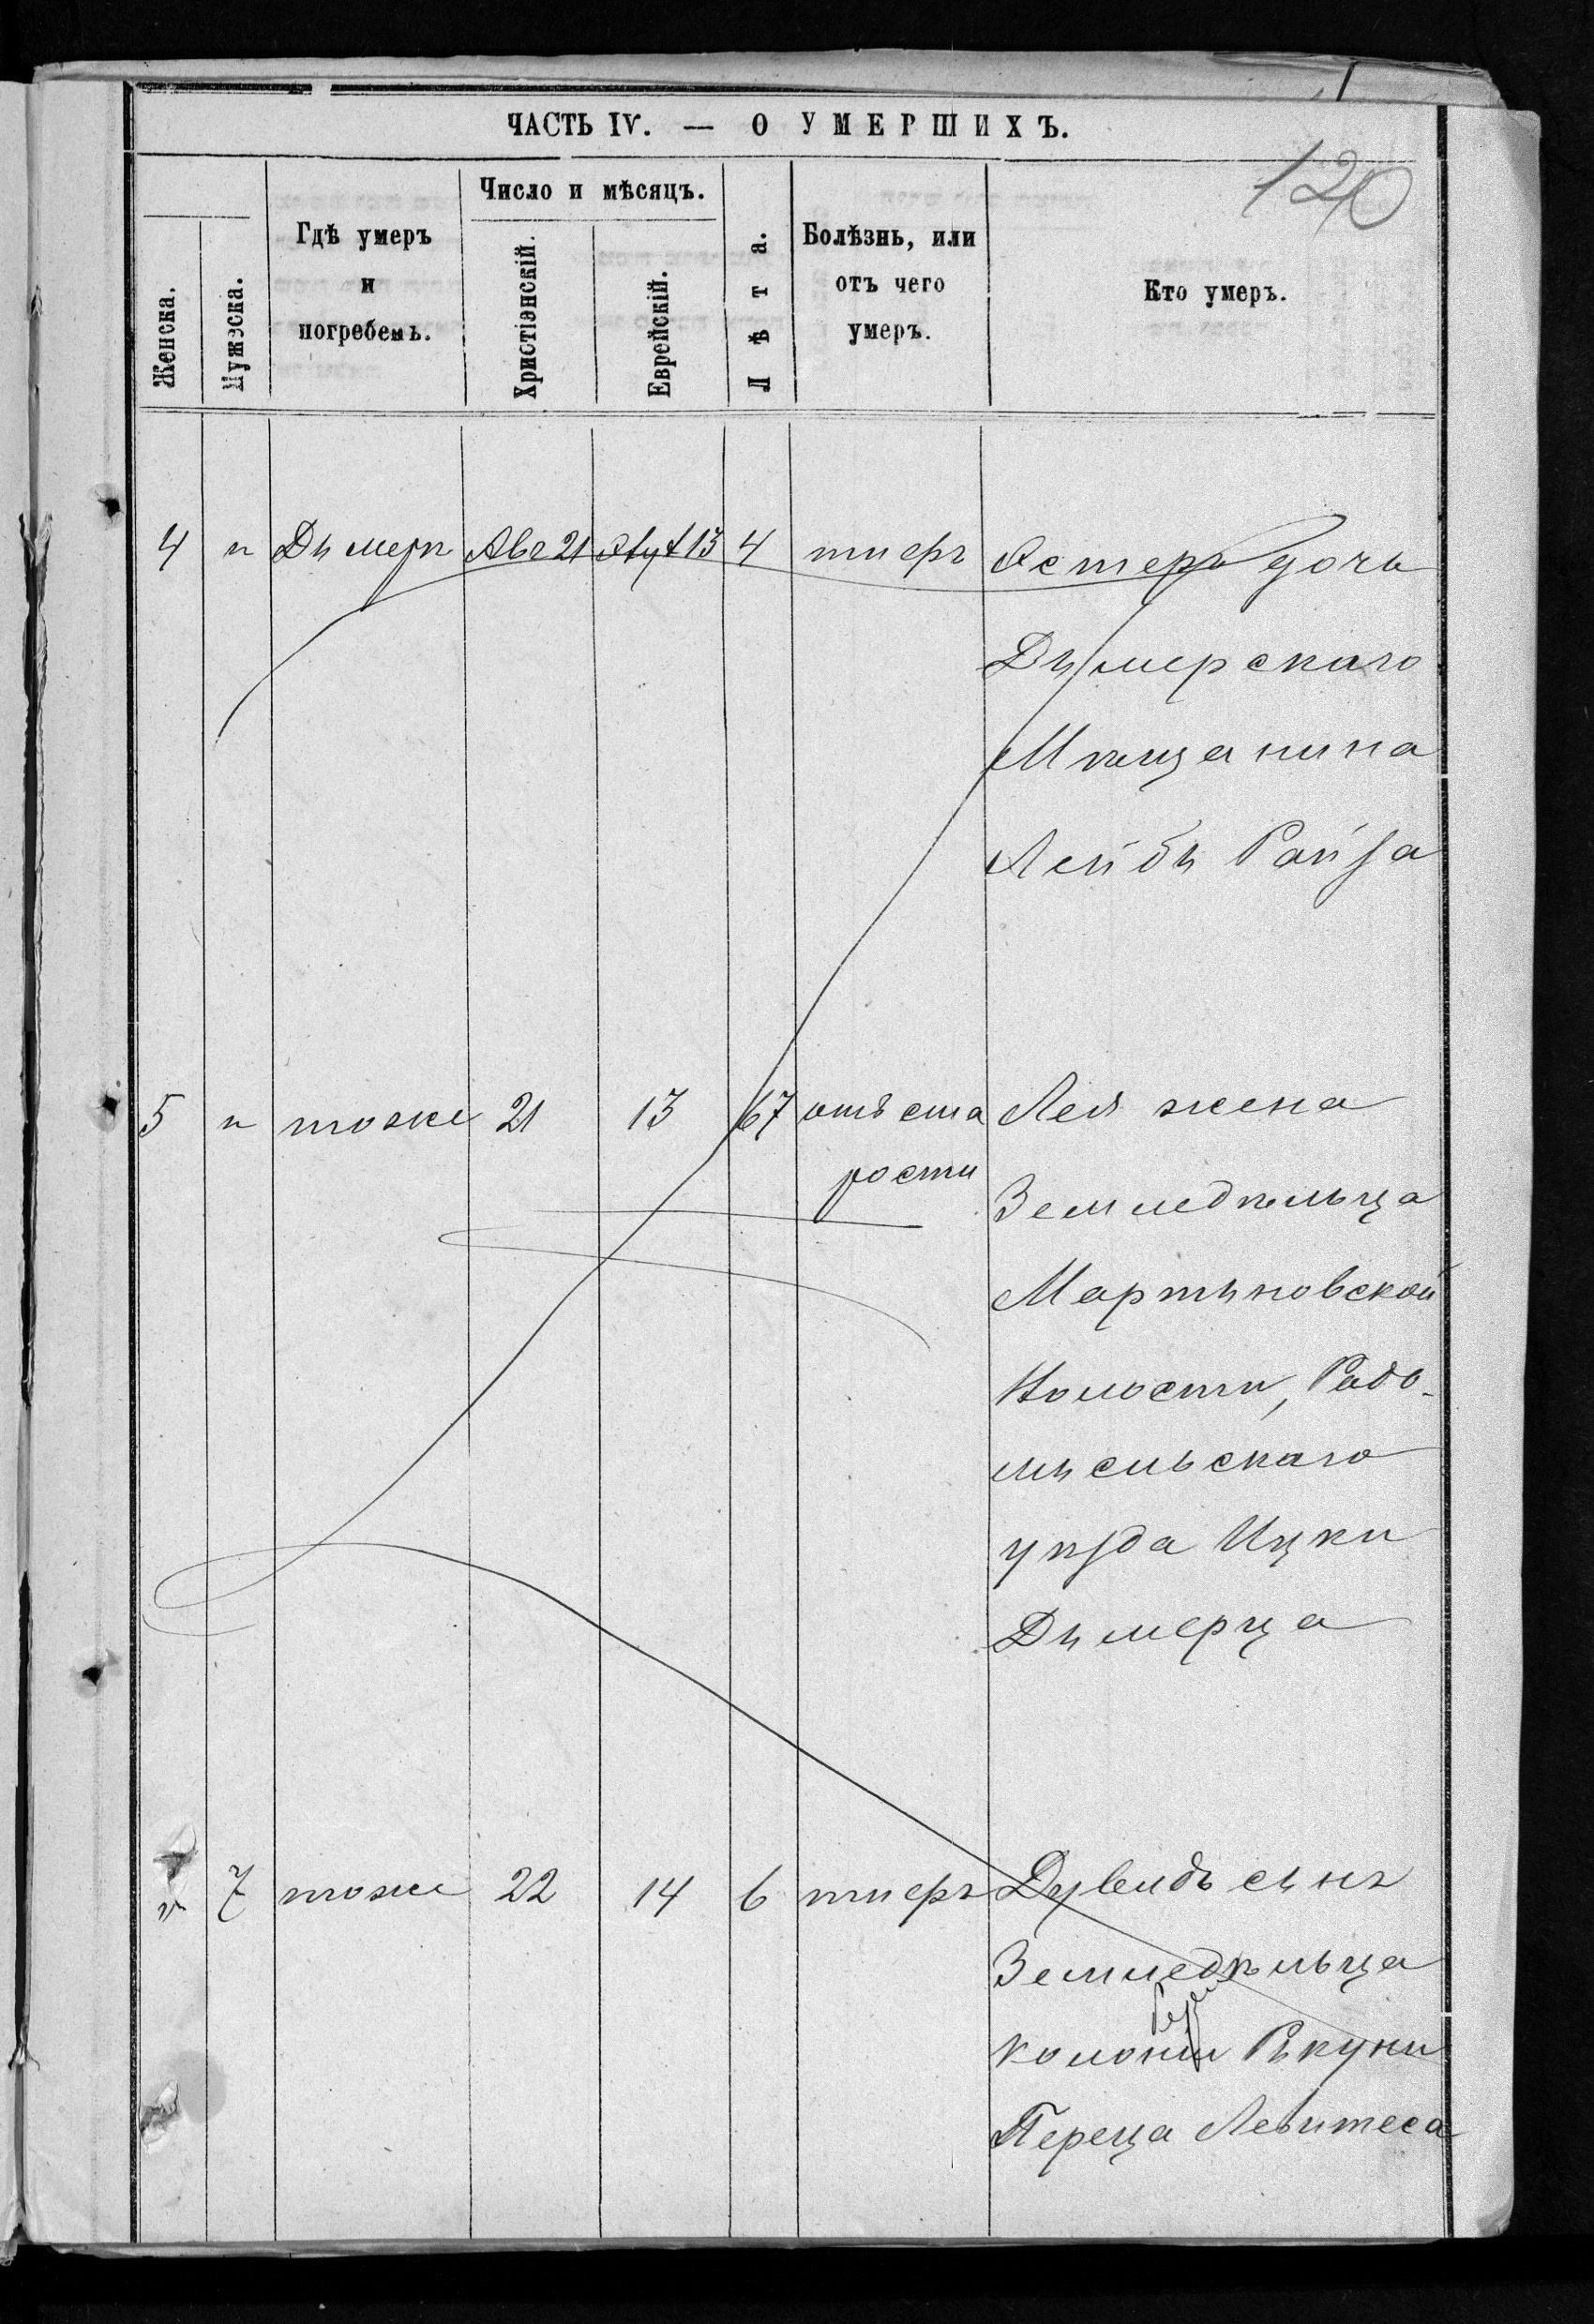 ЧАСТЬ IV. — О УМЕРШИХЪ.
120
Женска.
Мужеска.
Гдѣ умеръ и погребенъ.
Число и мѣсяцъ.
Христіанскій.
Еврейскій.
Лѣта.
Болѣзнь, или отъ чего умеръ.
Кто умеръ.
4 " Дымерѣ Авг 21 13 4 тифъ Эстеръ дочь
Дымерскаго
Мѣщанина
Лейбы Райза
5 " тоже 21 13 67 отъ ста Лея жена
рости
Земледѣльца
Мартыновской
Волости, Радо-
мысльскаго
уѣзда Ицки
Дымерца
" 7 тоже 22 14 6 тифъ Дувидъ сынъ
Земледѣльца
колоніи Рыкуни
Переца Левитеса